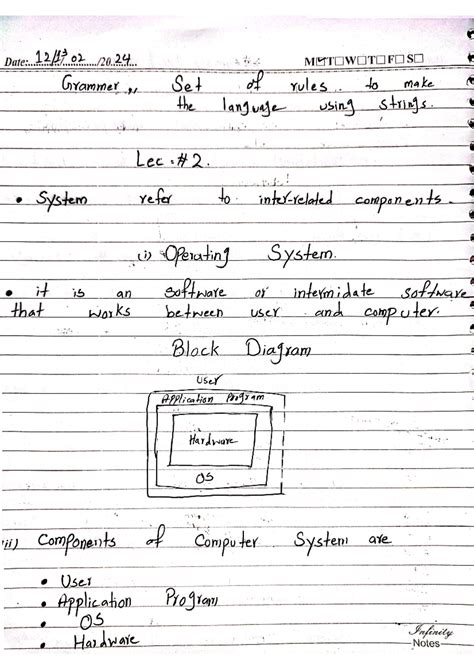 Date: 12/13 02 /20 24
M☑T☐W☐T☐F☐S☐
Grammer ,, Set of rules to make
the language using strings.
Lec :# 2.
• System refer to inter-related components.
(i) Operating System.
• it is an software or intermidate software
that works between user and computer.
Block Diagram
User
Application Program
Hardware
OS
ii) Components of Computer System are
• User
• Application Program
• OS
• Hardware
Infinity
Notes